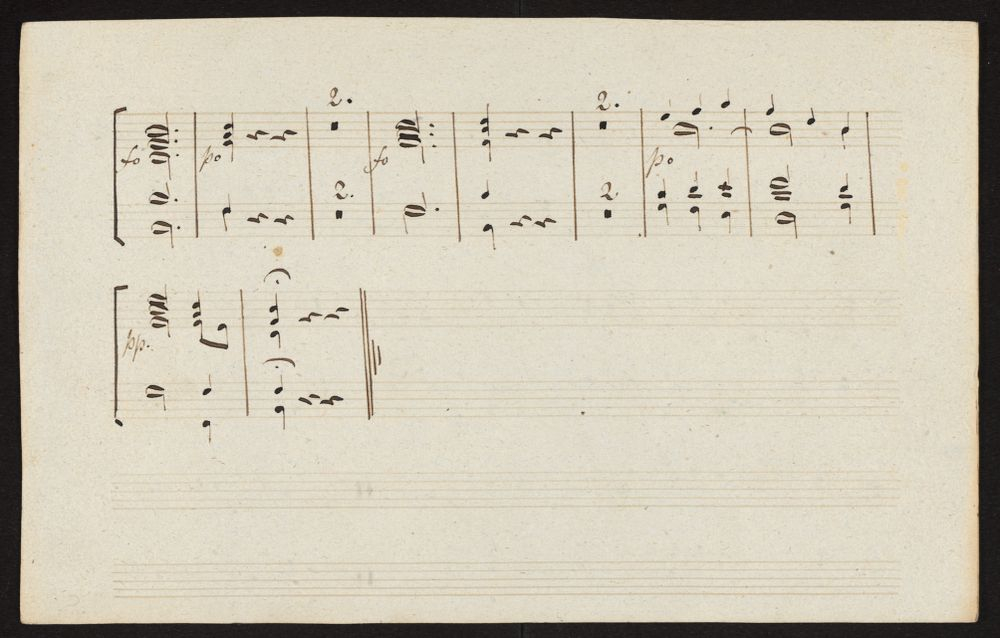 2. 2.
fo po fo po
2. 2.
pp.